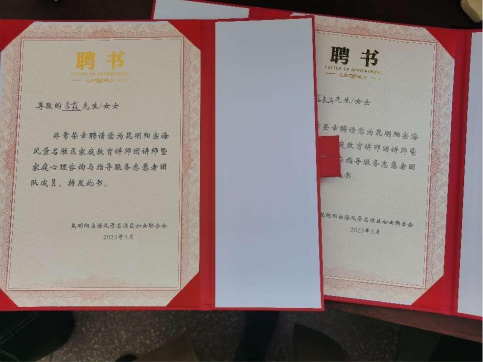 聘书
LETTER OF APPOINTMENT
尊敬的 先生/女士
非常荣幸聘请您为昆明阳宗海
风景名胜区家庭教育讲师团讲师暨
家庭心理咨询与指导服务志愿者团
队成员。特发此书。
昆明阳宗海风景名胜区妇女联合会
2023年3月
聘书
LETTER OF APPOINTMENT
先生/女士
非常荣幸聘请您为昆明阳宗海
家庭教育讲师团讲师暨
咨询与指导服务志愿者团
此书。
昆明阳宗海风景名胜区妇女联合会
2023年3月